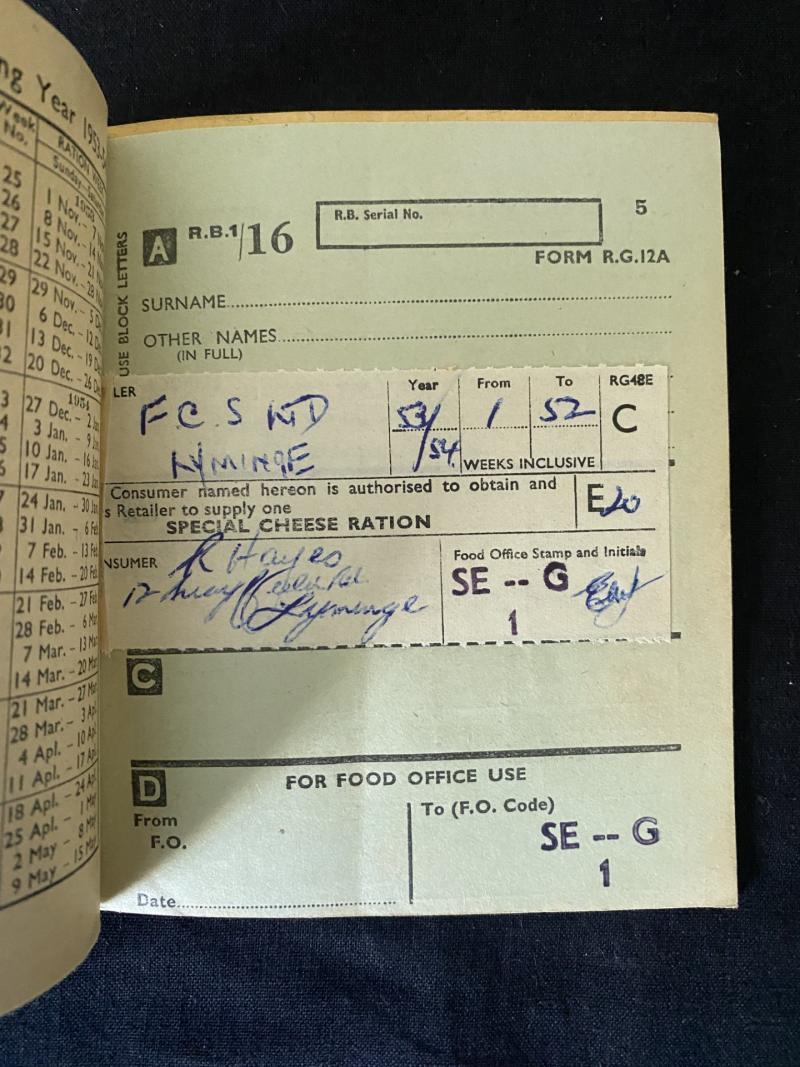 ng Year 1953-5
Week No.
RATION WEEK
Sunday-Saturday
1953
25 1 Nov.- 7 Nov.
26 8 Nov.- 14
27 15 Nov.- 21
28 22 Nov.- 28
29 29 Nov.- 5 D
30 6 Dec.- 12 D
31 13 Dec.- 19 D
2 20 Dec.- 26 De
1954
3 27 Dec.- 2 Jan
4 3 Jan. - 9
5 10 Jan. - 16
6 17 Jan. - 23
24 Jan. - 30 Jan
31 Jan. - 6 Feb
7 Feb. - 13 Feb
14 Feb. - 20 Feb
21 Feb. - 27 Feb
28 Feb. - 6 Mar
7 Mar. - 13 Mar
14 Mar. - 20 Mar
21 Mar. - 27 Mar
28 Mar. - 3 Apl
4 Apl. - 10 Apl
11 Apl. - 17 Apl
18 Apl. - 24 Apl
25 Apl. - 1 May
2 May - 8 May
9 May - 15 M
USE BLOCK LETTERS
A R.B.1/16 R.B. Serial No. 5
FORM R.G.12A
SURNAME
OTHER NAMES
(IN FULL)
LER Year From To RG48E
F.C.S LTD 53/54 1 52 C
LYMINGE WEEKS INCLUSIVE
Consumer named hereon is authorised to obtain and
s Retailer to supply one E20
SPECIAL CHEESE RATION
NSUMER R Hayes
12 Lyminge
Food Office Stamp and Initials
SE -- G
1
C
D FOR FOOD OFFICE USE
From
F.O.
To (F.O. Code)
SE -- G
1
Date